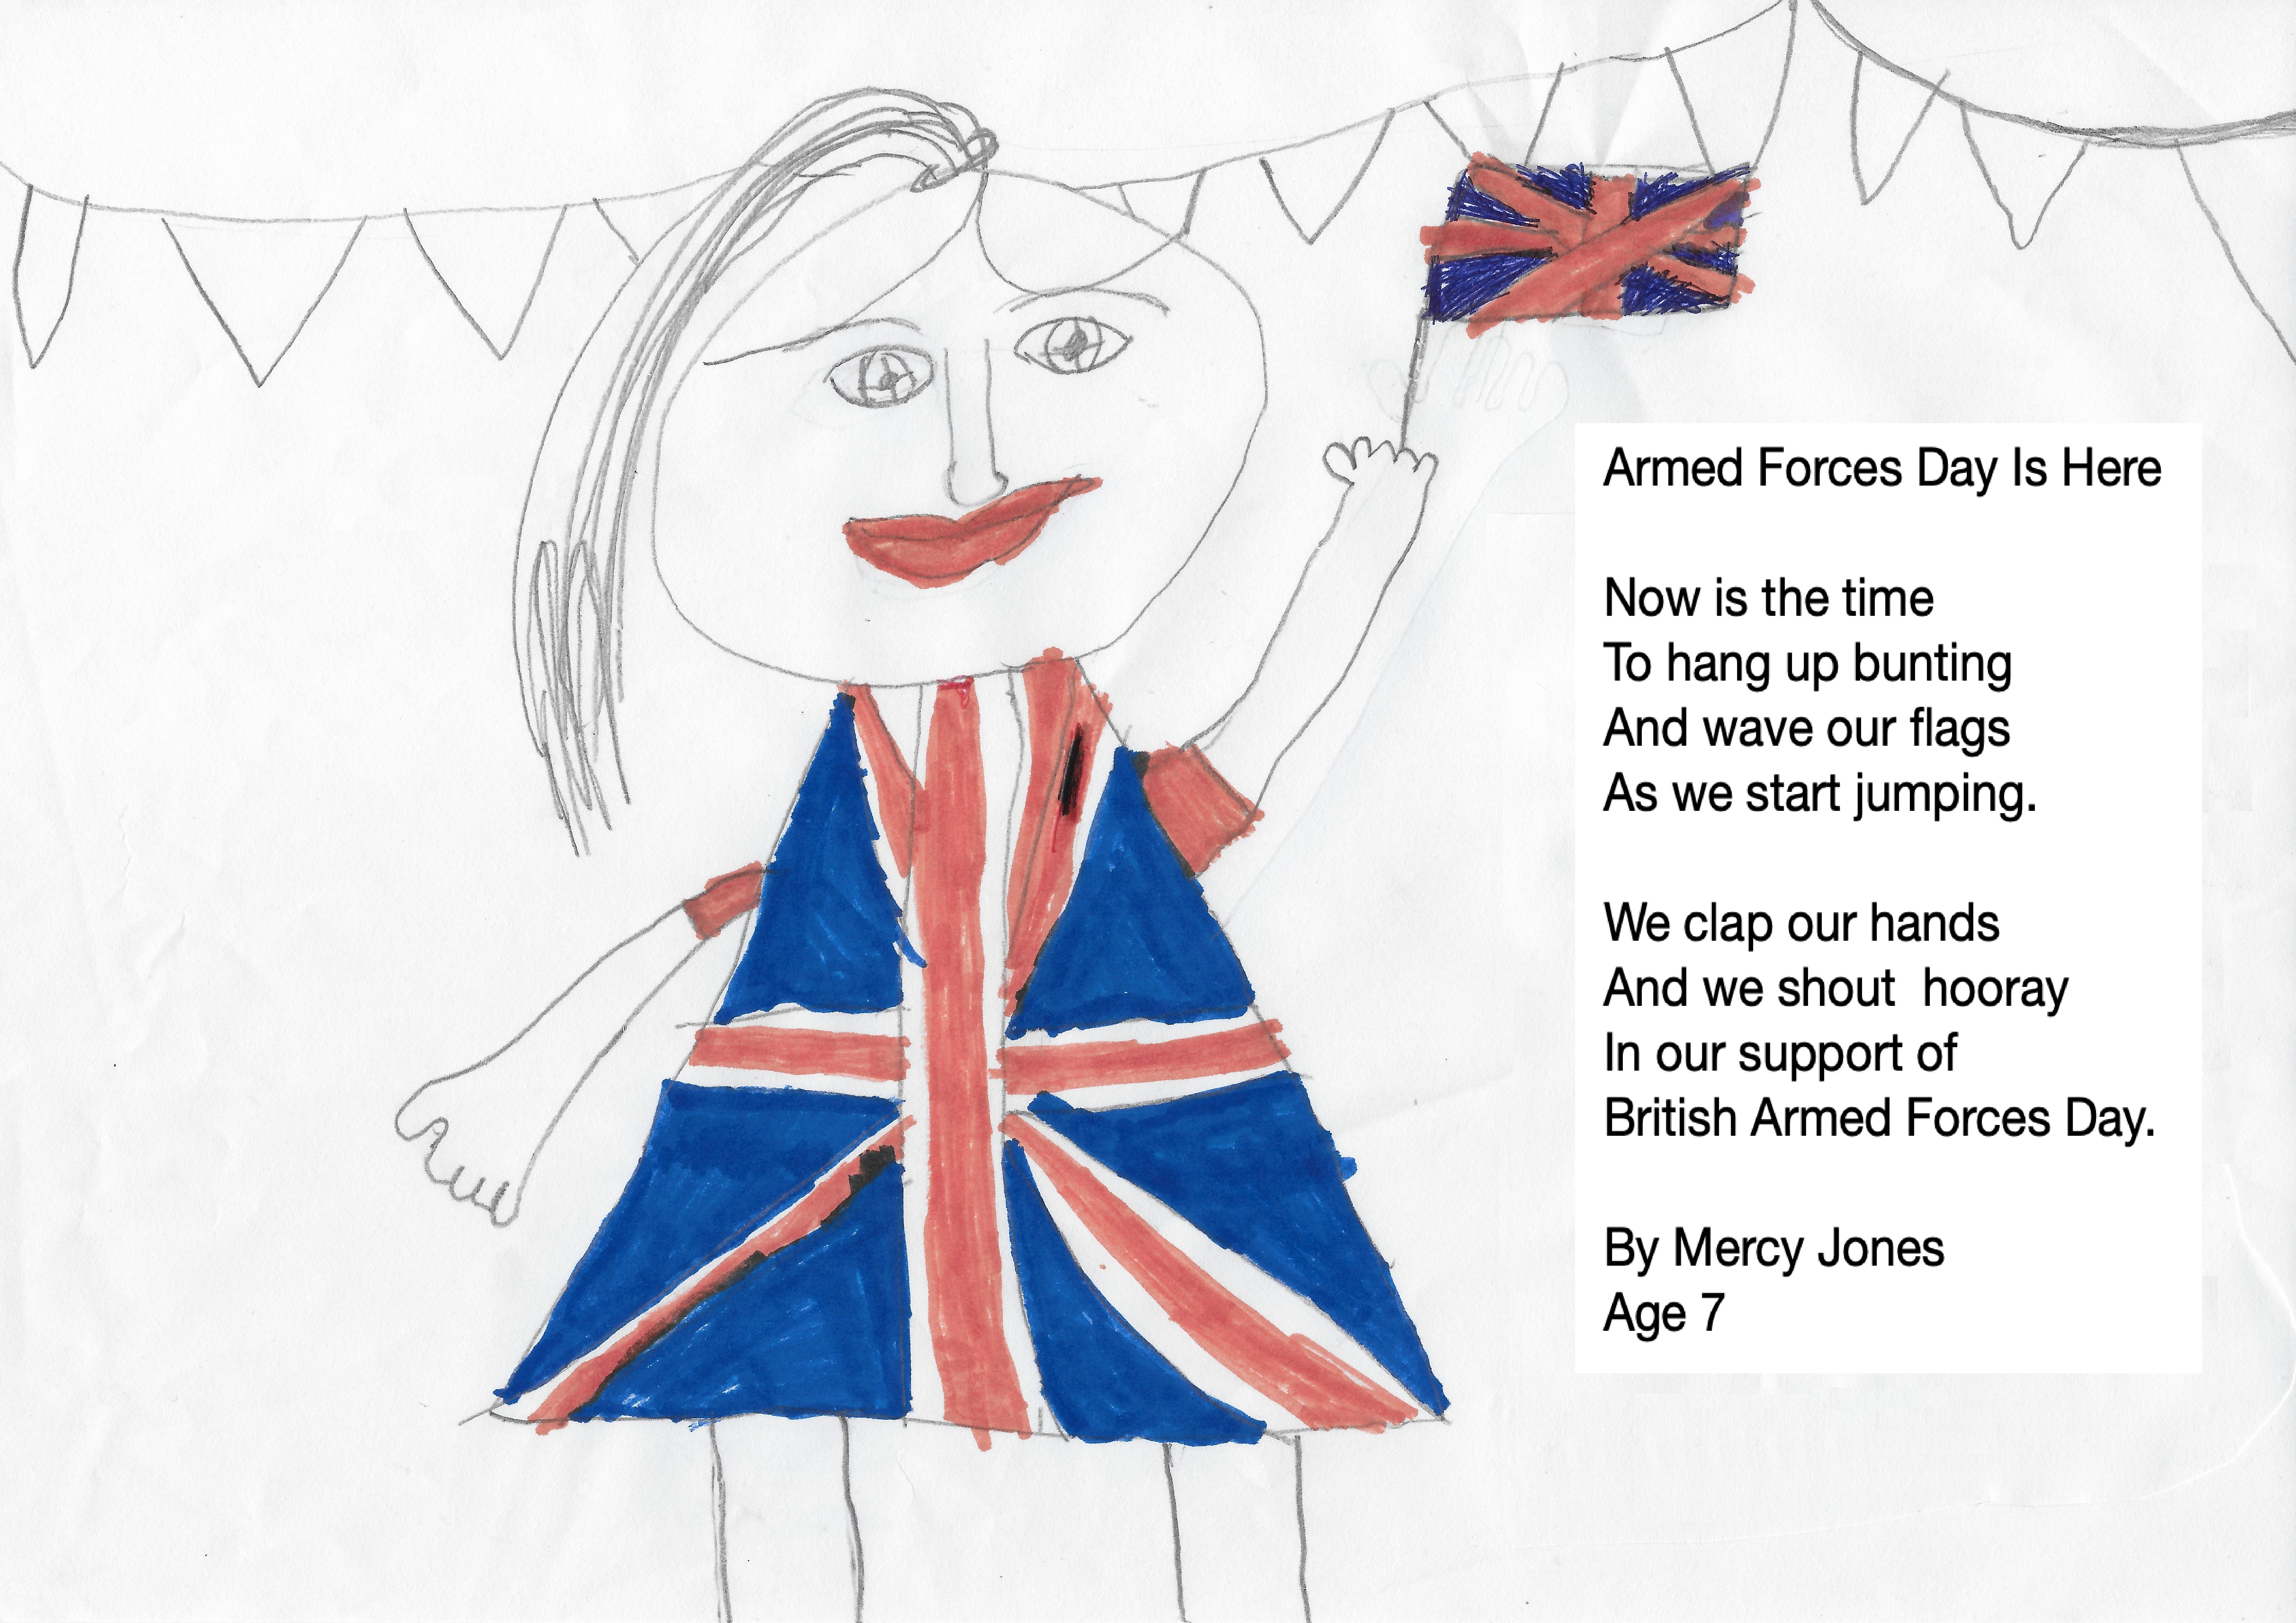 Armed Forces Day Is Here
Now is the time
To hang up bunting
And wave our flags
As we start jumping.
We clap our hands
And we shout  hooray
In our support of
British Armed Forces Day.
By Mercy Jones
Age 7